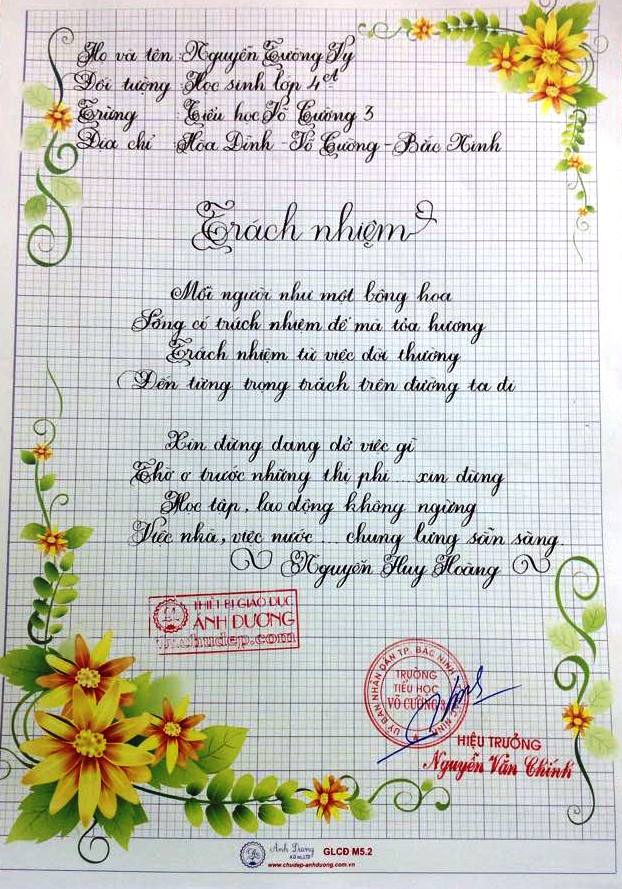 Họ và tên : Nguyễn Tường Vy
Đối tượng : Học sinh lớp 4A
Trường : Tiểu học Võ Cường 3
Địa chỉ : Hòa Đình - Võ Cường - Bắc Ninh
Trách nhiệm
Mỗi người như một bông hoa
Sống có trách nhiệm để mà tỏa hương
Trách nhiệm từ việc đời thường
Đến từng trọng trách trên đường ta đi
Xin đừng dang dở việc gì
Thờ ơ trước những thị phi ... xin đừng
Học tập, lao động không ngừng
Việc nhà, việc nước ... chung lưng sẵn sàng.
Nguyễn Huy Hoàng
THIẾT BỊ GIÁO DỤC
ÁNH DƯƠNG
ỦY BAN NHÂN DÂN TP. BẮC NINH
TRƯỜNG
TIỂU HỌC
VÕ CƯỜNG 3
HIỆU TRƯỞNG
Nguyễn Văn Chính
Ánh Dương
GLCĐ M5.2
www.chudep-anhduong.com.vn